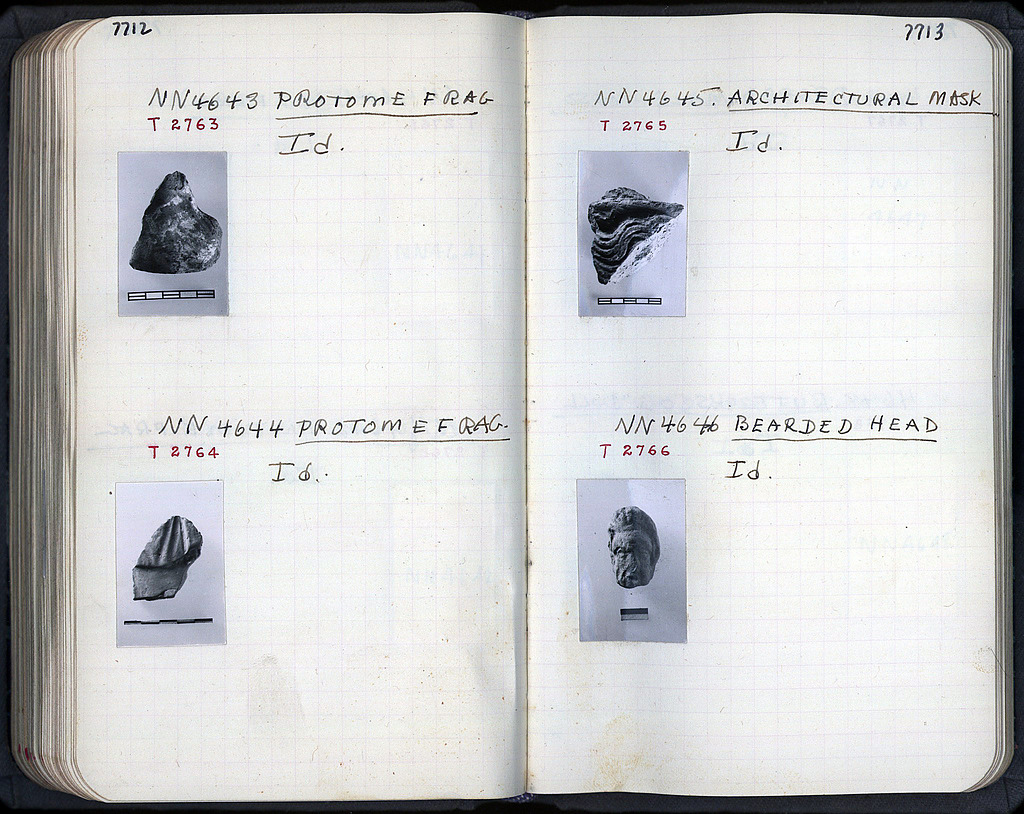 7712
NN4643 PROTOME FRAG
T 2763
Id.
NN 4644 PROTOME FRAG.
T 2764
Id.
7713
NN4645. ARCHITECTURAL MASK
T 2765
Id.
NN4646 BEARDED HEAD
T 2766
Id.